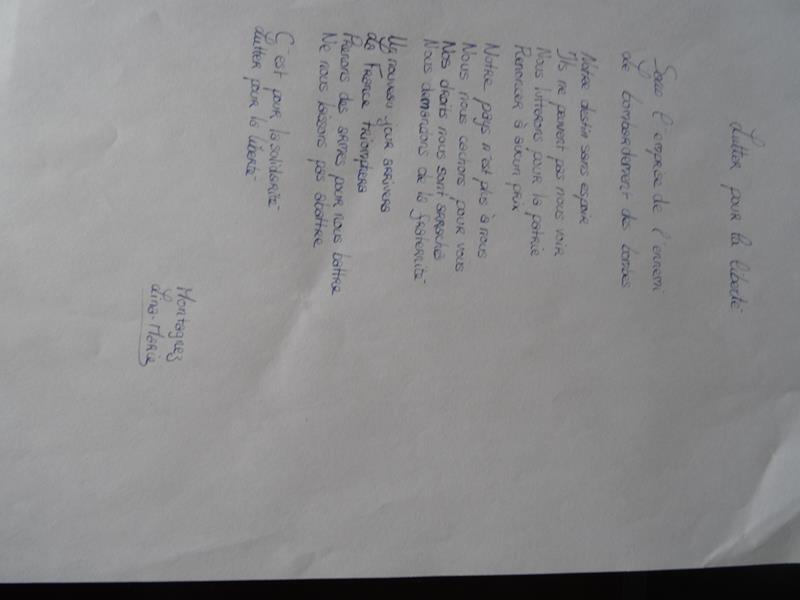 Lutter pour la liberté
Sous l'emprise de l'ennemi
de bombardement des bombes
Notre destin sans espoir
Ils ne peuvent pas nous voir
Nous lutterons pour la patrie
Renoncer à aucun prix
Notre pays n'est plus à nous
Nous nous cachons pour vous
Nos droits nous sont arrachés
Nous demandons de la fraternité
Un nouveau jour arrivera
La France triomphera
Prenons des armes pour nous battre
Ne nous laissons pas abattre
C'est pour la solidarité
Lutter pour la liberté
Montagnez
Lina-Marie